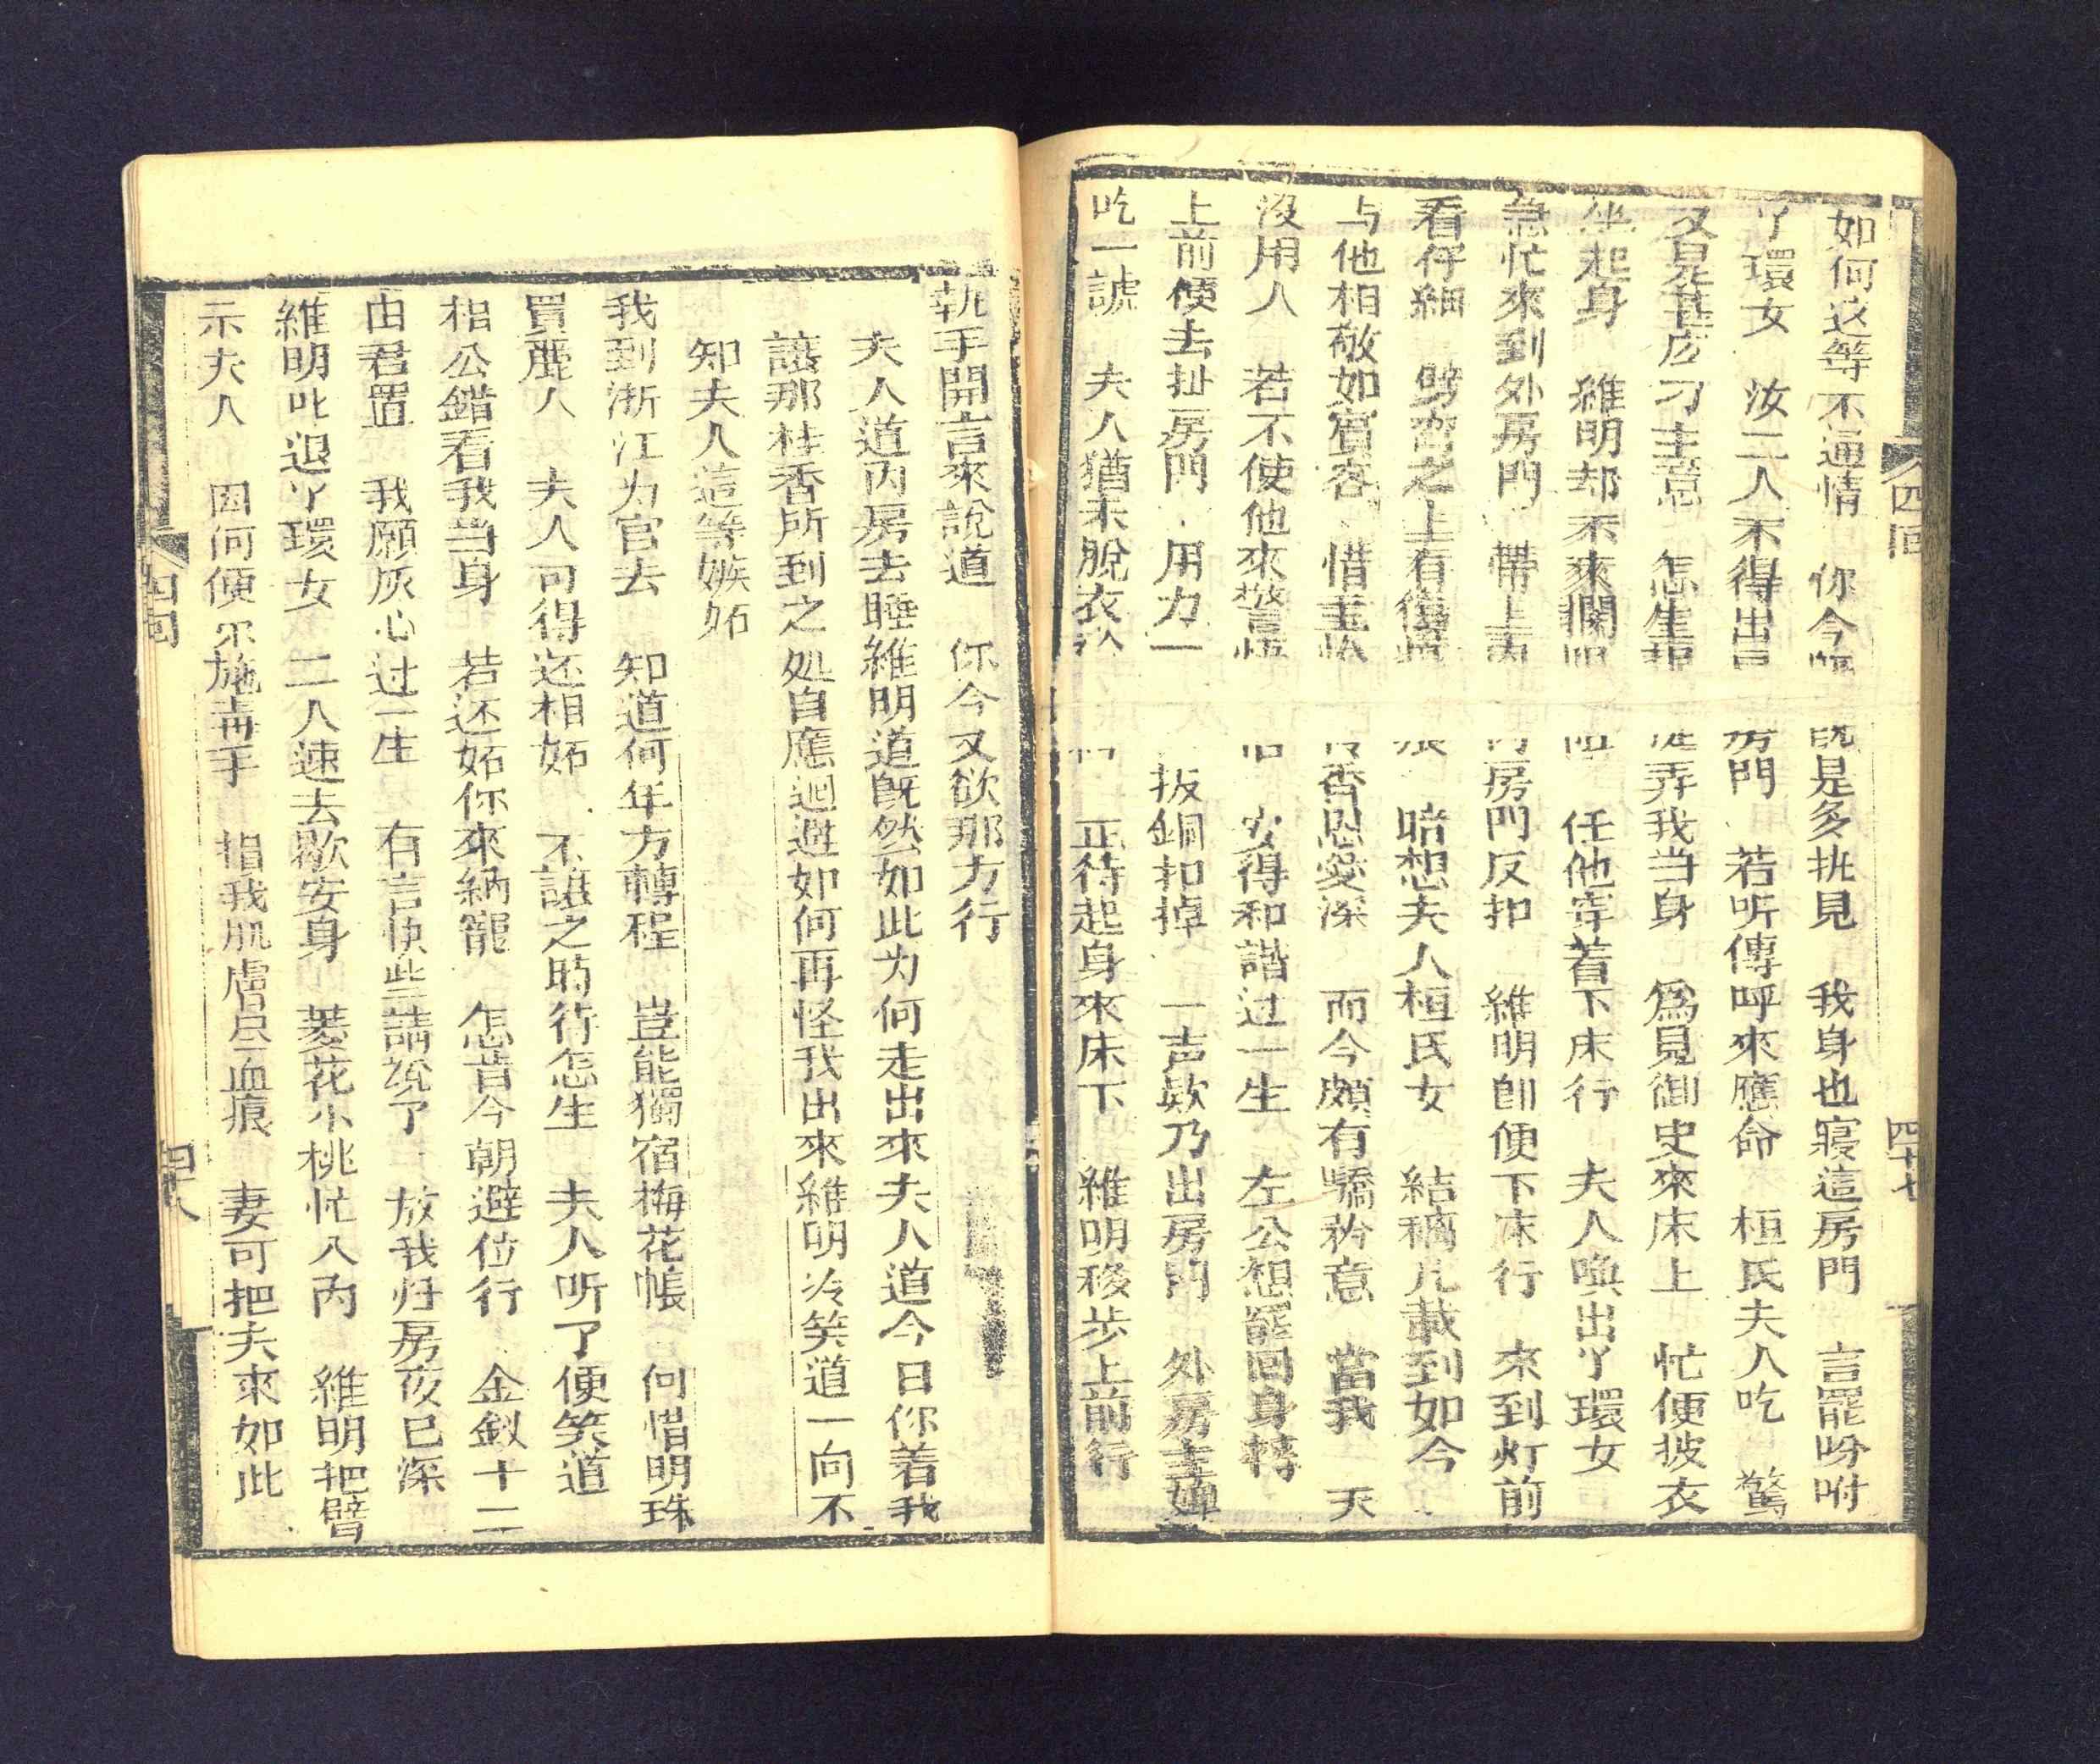 四回
四十七
如何这等不通情　你今　既是多挑見　我身也寝這房門　言罷吩咐
丫環女　汝二人不得出　房門　若听傳呼來應命　桓氏夫人吃　驚
又是甚庅刁主意　怎生　弄我当身　為見御史來床上　忙便披衣
坐起身　維明却不來攔　任他穿着下床行　夫人喚出丫環女
急忙來到外房門　帶上　房門反扣　維明卽便下床行　來到灯前
看仔細　劈窓之上有　暗想夫人桓氏女　結縭几載到如今
与他相敬如賓客　惜玉　香恩愛深　而今頗有驕矜意　當我　天
沒用人　若不使他來警悟　安得和諧过一生　左公想罷回身轉
上前便去扯房門　用力一　扳銅扣掉　一声欸乃出房門　外房主婢
吃一諕　夫人猶未脫衣　正待起身來床下　維明移步上前行
執手開言來說道　你今又欲那方行
夫人道内房去睡維明道旣然如此为何走出來夫人道今日你着我
讓那桂香所到之処自應迴避如何再怪我出來維明冷笑道一向不
知夫人這等嫉妬
我到浙江为官去　知道何年方轉程　豈能獨宿梅花帳　何惜明珠
買麗人　夫人可得还相妬　不讓之時行怎生　夫人听了便笑道
相公錯看我当身　若还妬你來納寵　怎肯今朝避位行　金釵十二
由君置　我願灰心过一生　有言快些請說了　放我归房夜已深
維明叱退丫環女　二人速去歇安身　菱花小桃忙入内　維明把臂
示夫人　因何便尔施毒手　損我肌膚尽血痕　妻可把夫來如此
四回
四十八